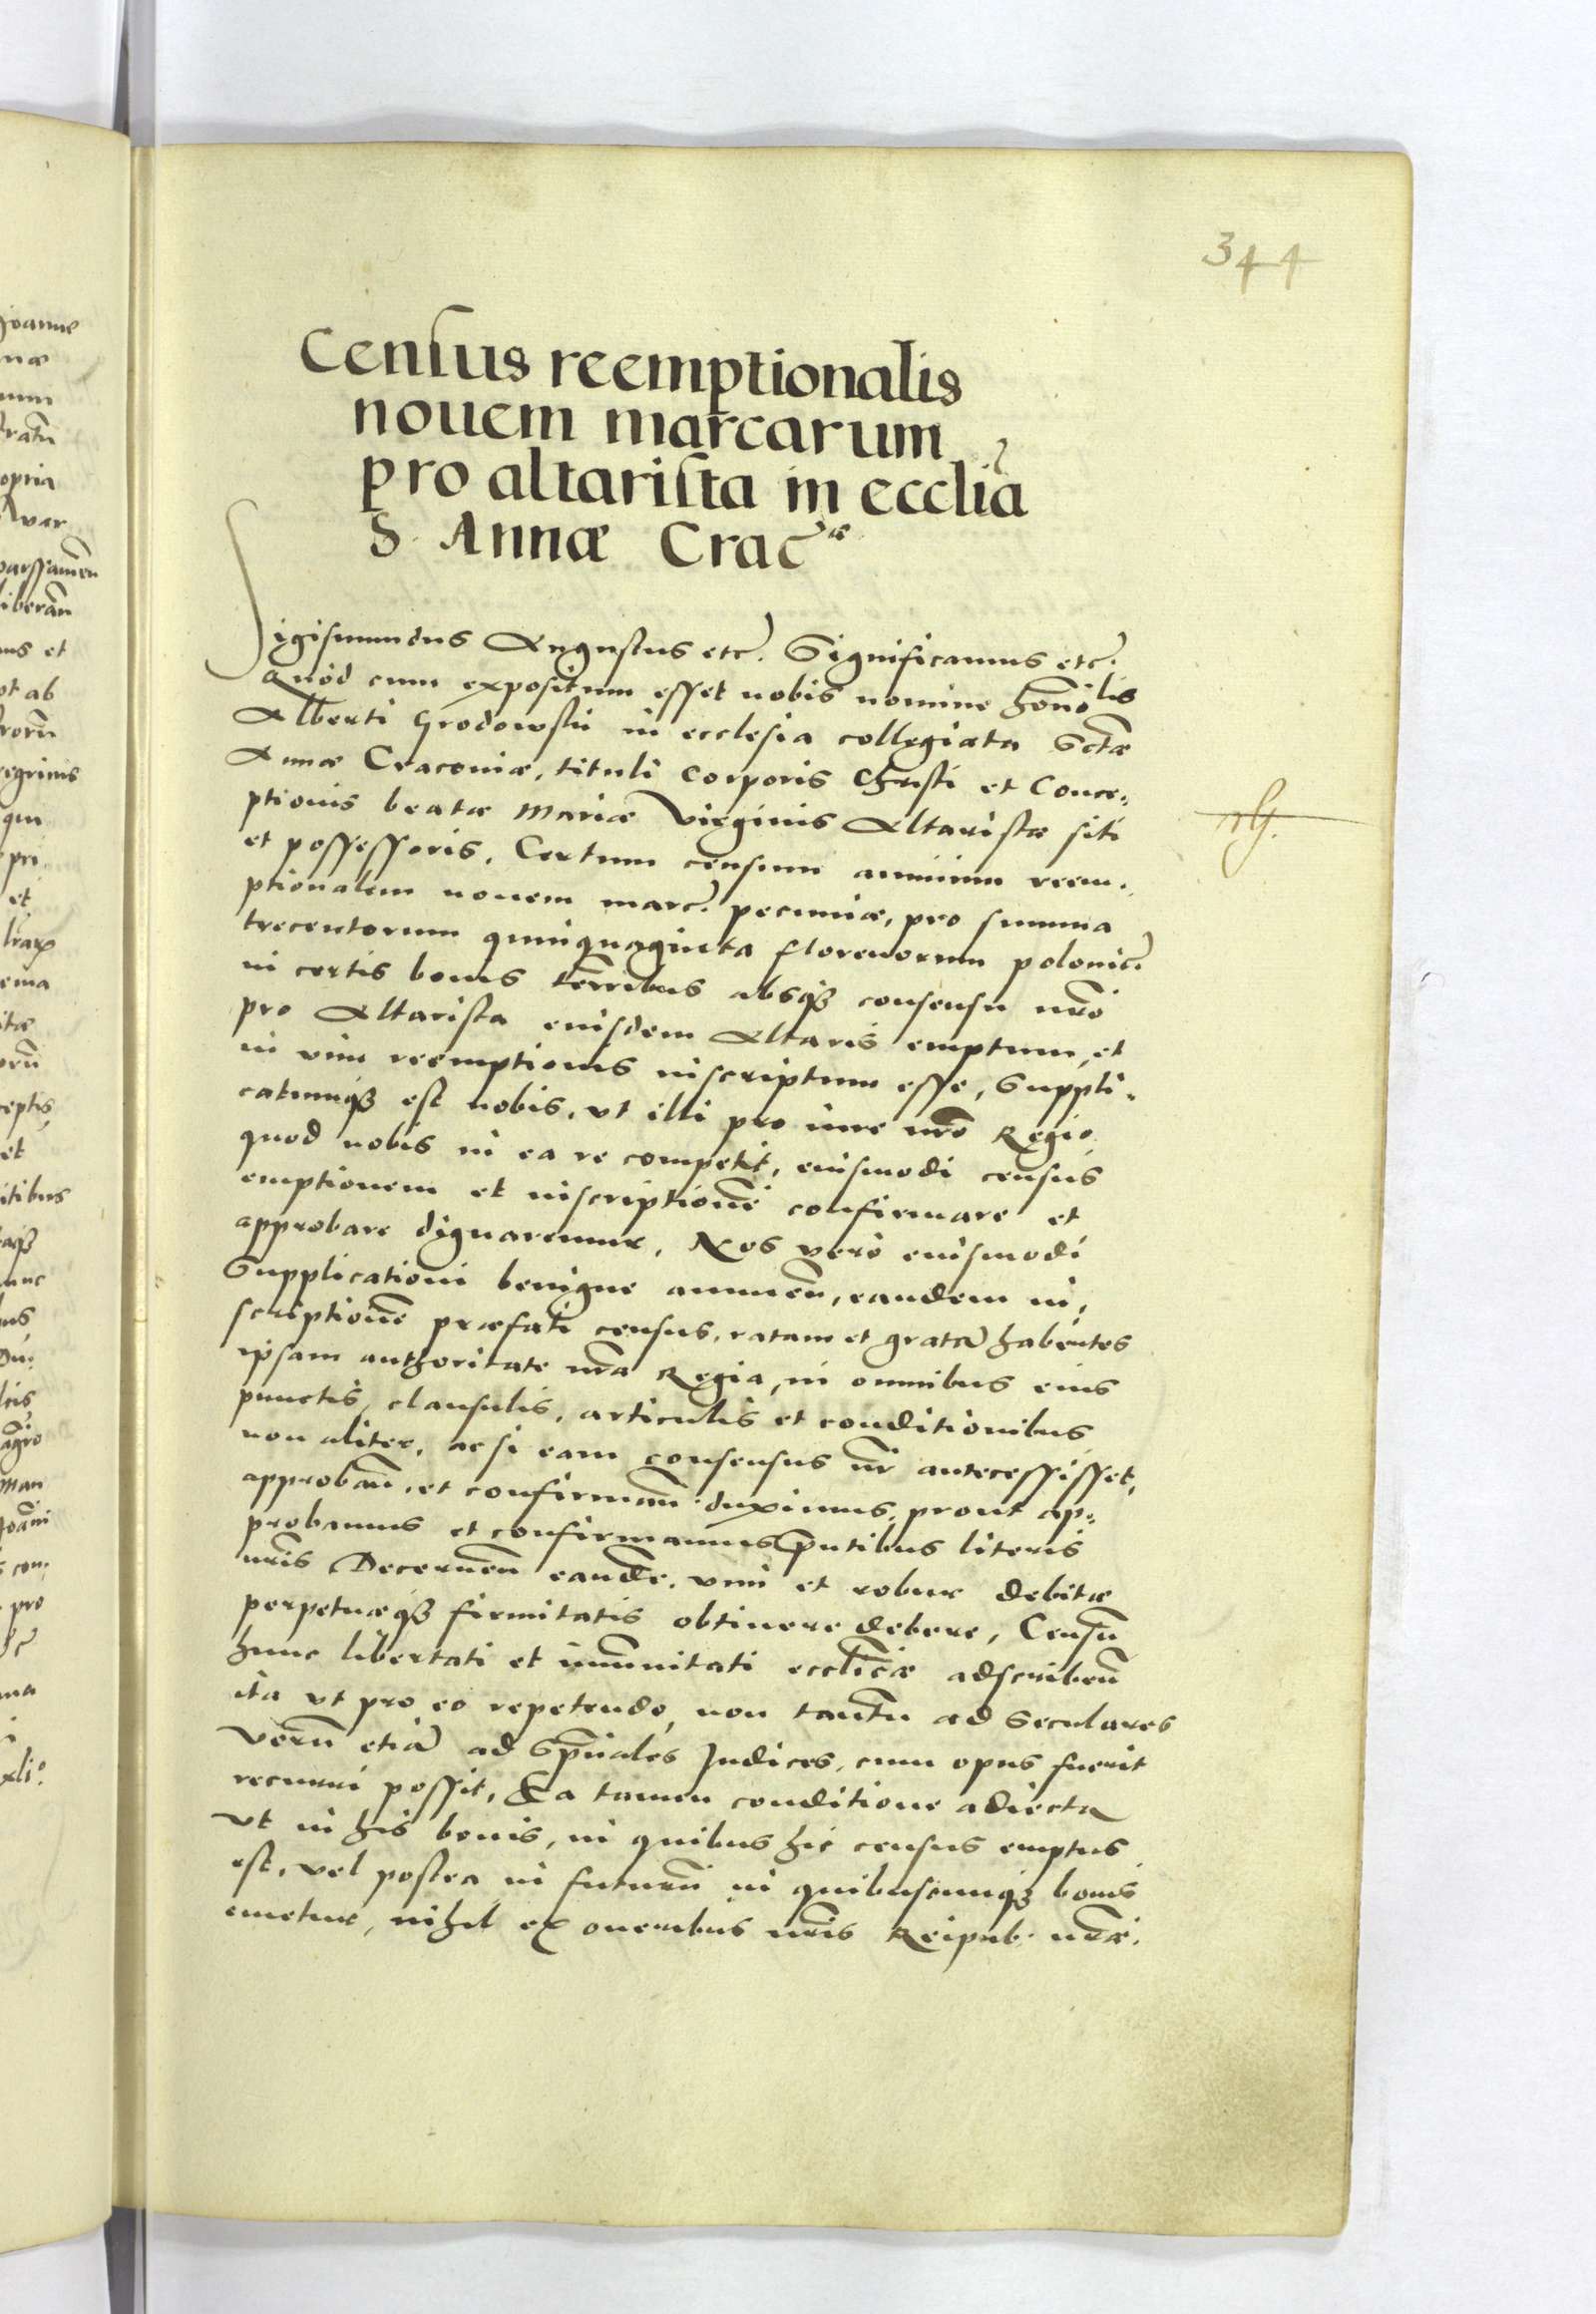 344
Census reemptionalis
nouem marcarum
pro altarista in eccli͠a
S. Annæ Crac͠æ
Sigismundus Augustus etc. Significamus etc.
Quòd cum expositum esset nobis nomine hono͠lis
Alberti Grodowski in ecclesia collegiata Sctæ
Annæ Cracouiæ, tituli Corporis Christi et Conce„
ptionis beatæ Mariæ Virginis Altaristæ siti
et possessoris, Certum censum annuum reem„
ptionalem nouem marc. pecuniæ, pro summa
trecentorum quinquaginta florenorum polonic.
in certis bonis terr͠ibus absq3 consensu nr͠o
pro Altarista eiusdem Altaris emptum, et
in vim reemptionis inscriptum esse, Suppli„
catumq3 est nobis, vt illi pro iure nr͠o Regio
quod nobis in ea re competit, eiusmodi census
emptionem et inscription͠e confirmare et
approbare dignaremur, Nos verò eiusmodi
Supplicationi benigne annuen͠, eandem in„
scription͠e præfati census, ratam et gratã habentes
ipsam authoritate nr͠a Regia, in omnibus eius
punctis, clausulis, articulis et conditionibus
non aliter, ac si eam consensus nr͠ antecessisset,
approban͠, et confirman͠ duximus, prout ap„
probamus et confirmamus pn͠tibus literis
nr͠is Decernen͠ eand͠e, vim et robur debitæ
perpetuæq3 firmitatis obtinere debere, Censũ
hunc libertati et im͠unitati eccli͠cæ adscriben͠
ita vt pro eo repetendo, non tantũ ad seculares
Verũ etiã ad Sp͠uales Judices, cum opus fuerit
recurri possit, Ea tamen conditione adiecta
Vt in his bonis, in quibus hic census emptus
est, vel postea in futurũ in quibuscumq3 bonis
emetur, nihil ex oneribus nr͠is Reipub. nr͠æ.